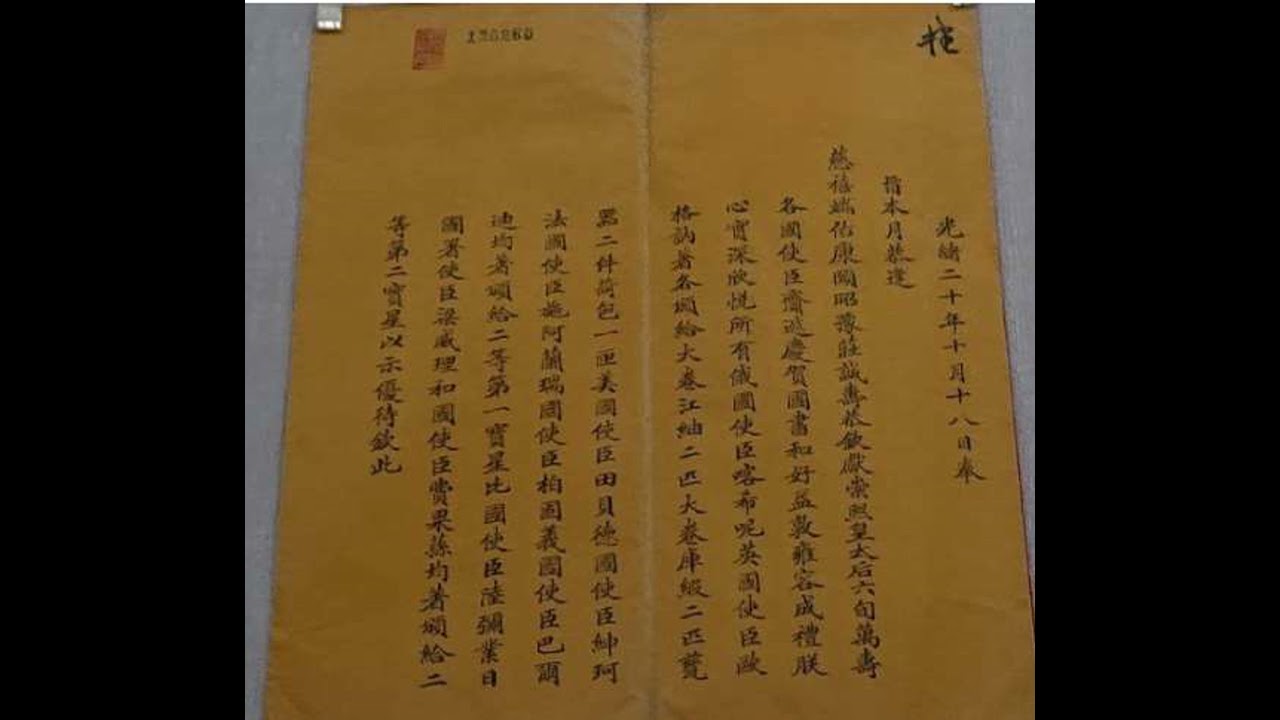 光緒二十年十月十八日奉
旨本月恭逢
慈禧端佑康頤昭豫莊誠壽恭欽獻崇熙皇太后六旬萬壽
各國使臣齎遞慶賀國書和好益敦雍容成禮朕
心實深欣悅所有俄國使臣喀希呢英國使臣歐
格訥著各頒給大卷江紬二匹大卷庫緞二匹甆
器二件荷包一匣美國使臣田貝德國使臣紳珂
法國使臣施阿蘭瑞國使臣柏固義國使臣巴爾
迪均著頒給二等第一寶星比國使臣陸彌業日
國署使臣梁威理和國使臣費果蓀均著頒給二
等第二寶星以示優待欽此